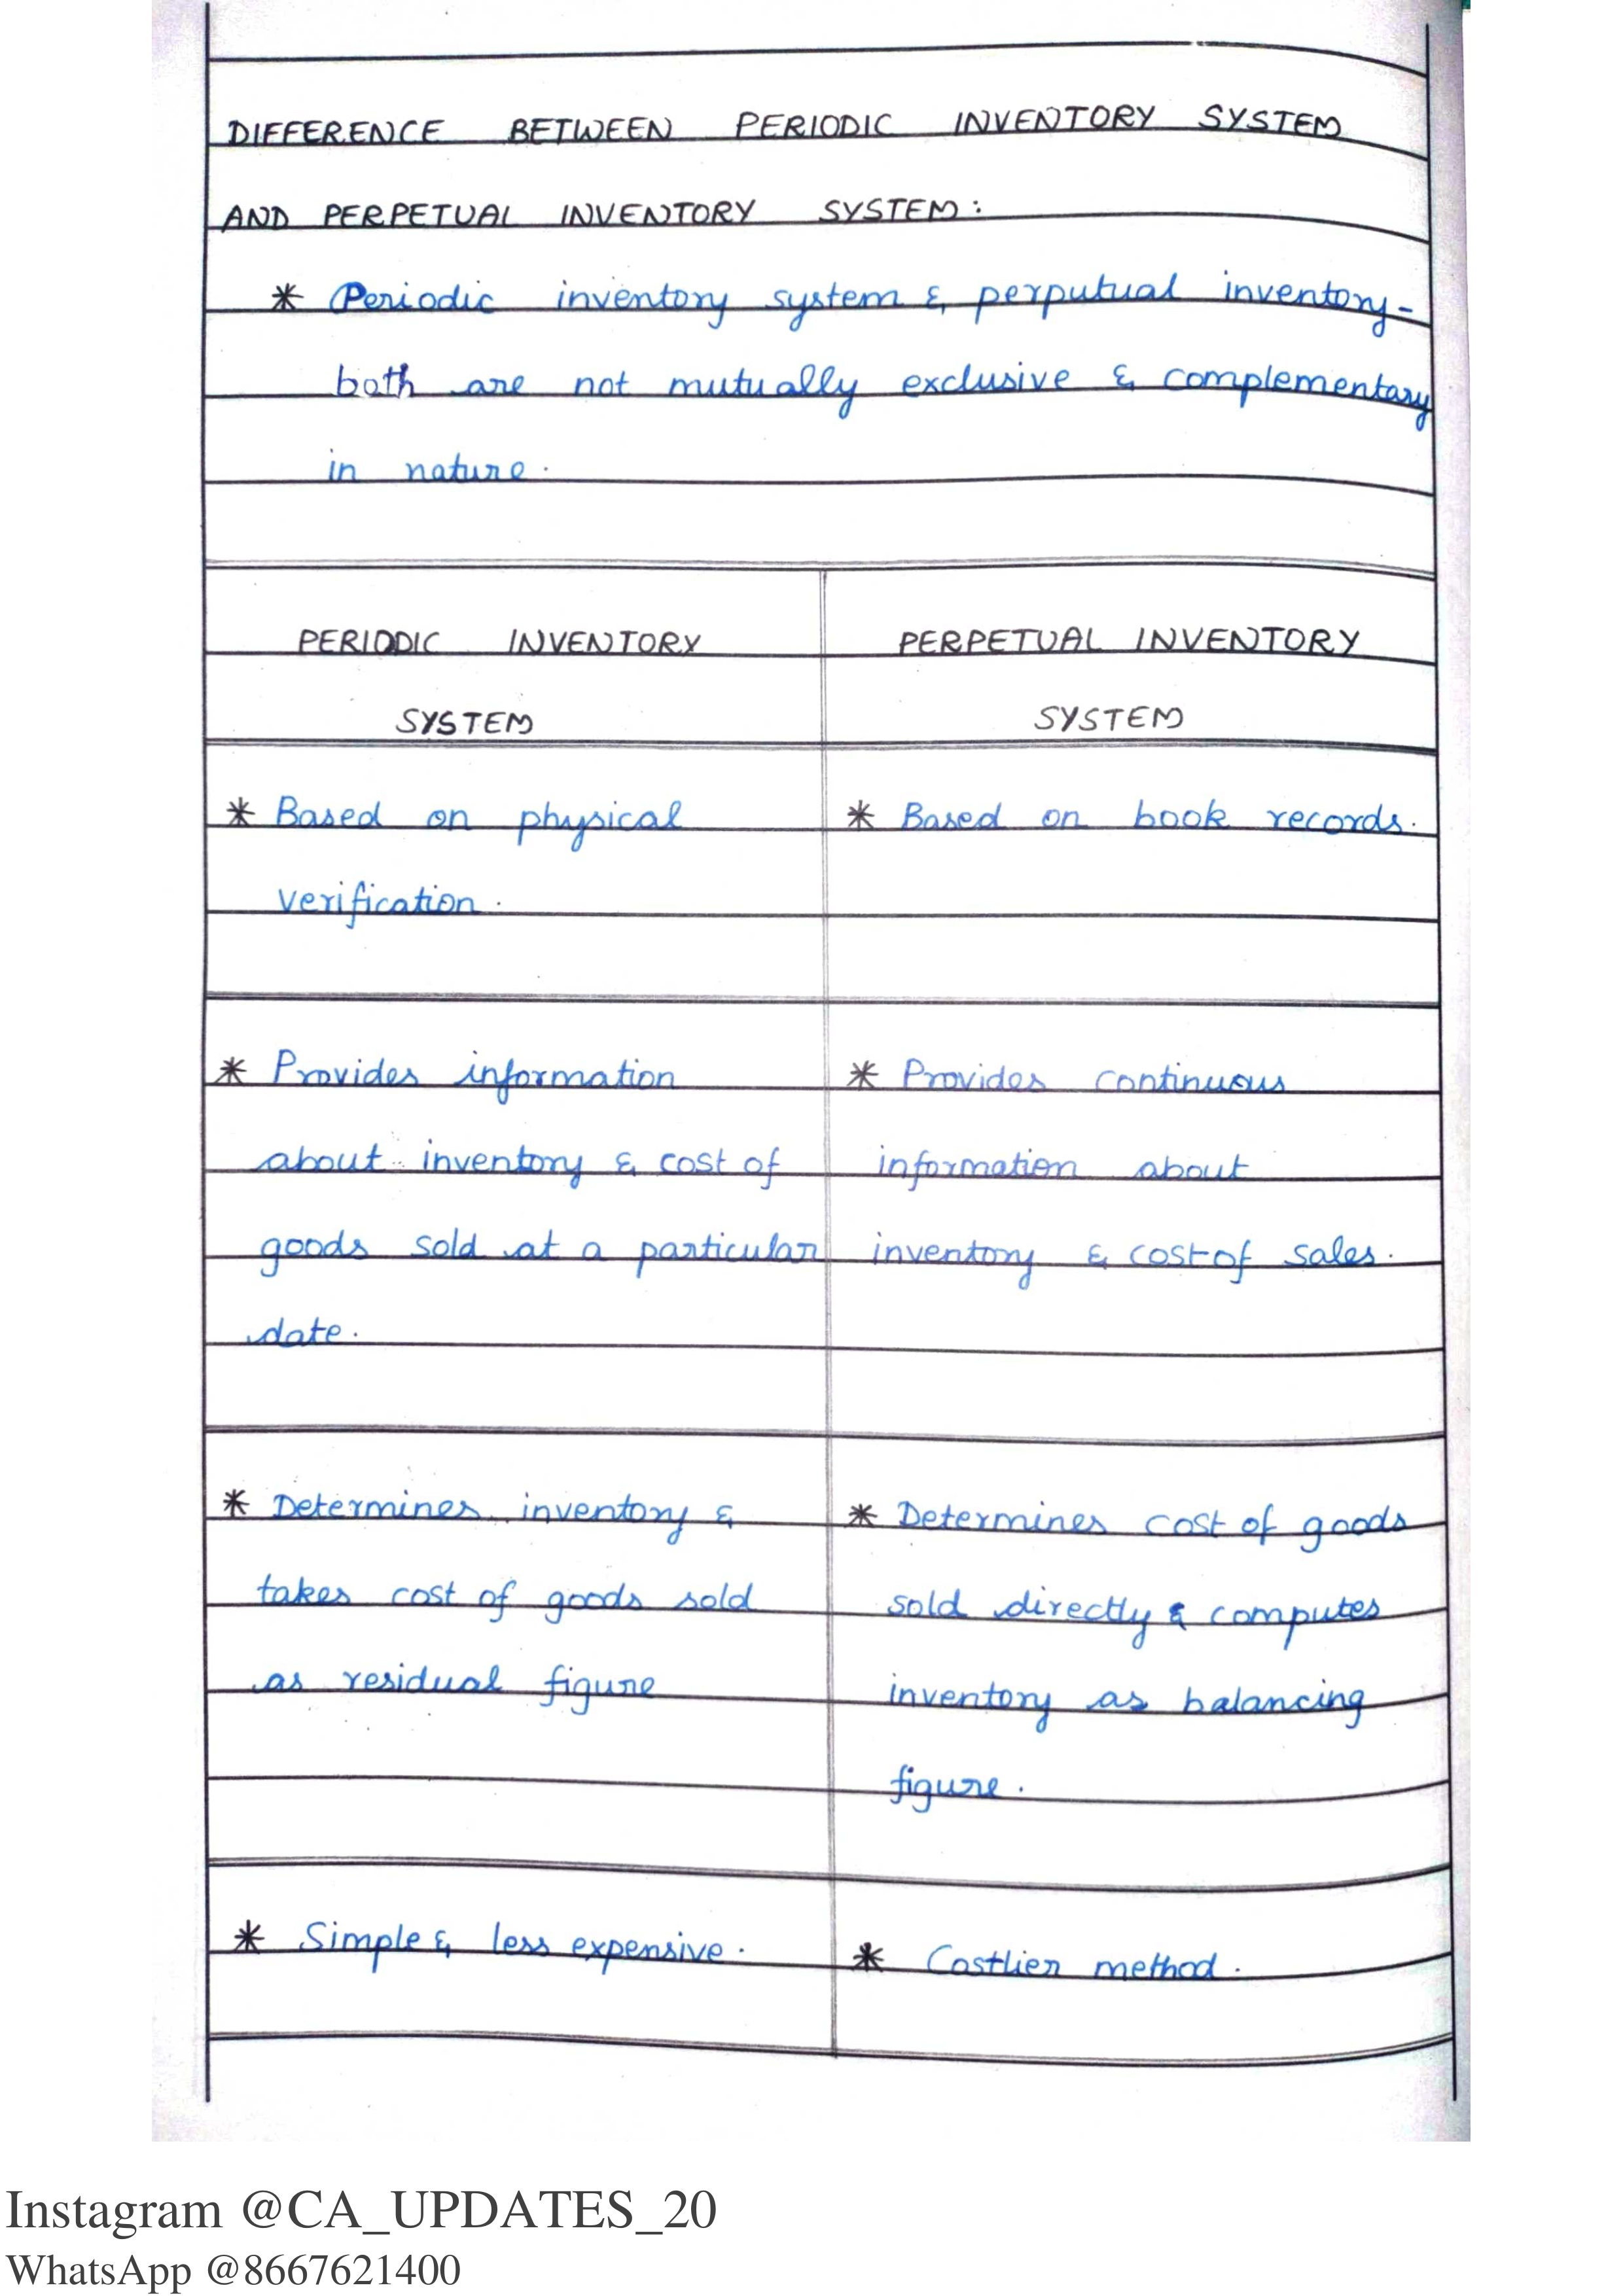 DIFFERENCE BETWEEN PERIODIC INVENTORY SYSTEM
AND PERPETUAL INVENTORY SYSTEM:
* Periodic inventory system & perputual inventory-
both are not mutually exclusive & complementary
in nature.
PERIODIC INVENTORY
SYSTEM
PERPETUAL INVENTORY
SYSTEM
* Based on physical
verification.
* Based on book records.
* Provides information
about inventory & cost of
goods sold at a particular
date.
* Provides continuous
information about
inventory & cost of sales.
* Determines inventory &
takes cost of goods sold
as residual figure
* Determines cost of goods
sold directly & computes
inventory as balancing
figure.
* Simple & less expensive.
* Costlier method.
Instagram @CA_UPDATES_20
WhatsApp @8667621400